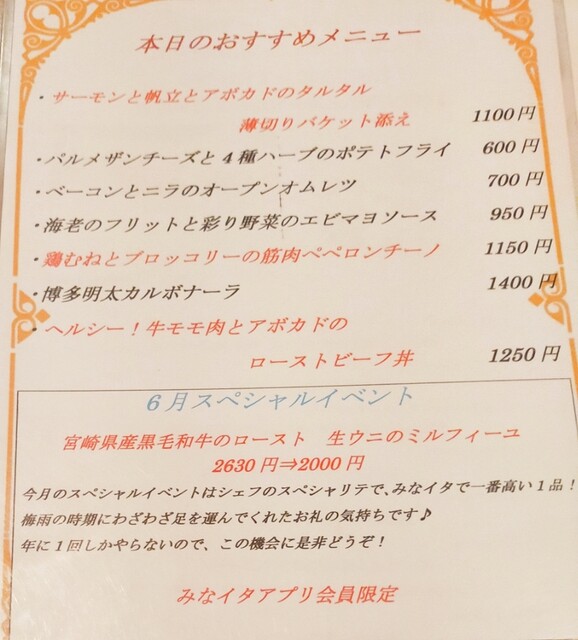 本日のおすすめメニュー
・サーモンと帆立とアボカドのタルタル
薄切りバケット添え 1100円
・パルメザンチーズと4種ハーブのポテトフライ 600円
・ベーコンとニラのオープンオムレツ 700円
・海老のフリットと彩り野菜のエビマヨソース 950円
・鶏むねとブロッコリーの筋肉ペペロンチーノ 1150円
・博多明太カルボナーラ 1400円
・ヘルシー！牛モモ肉とアボカドの
ローストビーフ丼 1250円
6月スペシャルイベント
宮崎県産黒毛和牛のロースト 生ウニのミルフィーユ
2630円⇒2000円
今月のスペシャルイベントはシェフのスペシャリテで、みなイタで一番高い1品！
梅雨の時期にわざわざ足を運んでくれたお礼の気持ちです♪
年に1回しかやらないので、この機会に是非どうぞ！
みなイタアプリ会員限定